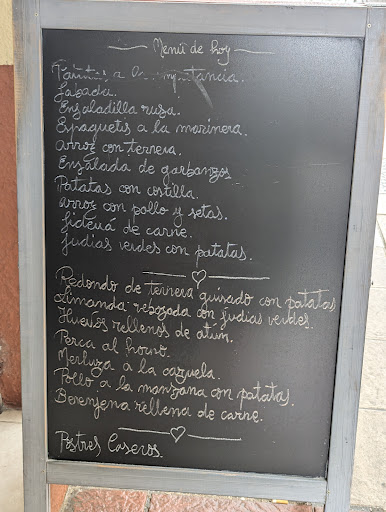 Menú de hoy
a la
Fabada.
Ensaladilla rusa.
Espaguetis a la marinera.
arroz con ternera.
Ensalada de garbanzos
Patatas con costilla.
arroz con pollo y setas.
fideuá de carne.
Judias verdes con patatas.
Redondo de ternera guisado con patatas
Limanda rebozada con judias verdes.
Huevos rellenos de atún.
Perca al horno.
Merluza a la cazuela.
Pollo a la manzana con patatas.
Berenjena rellena de carne.
Postres Caseros.